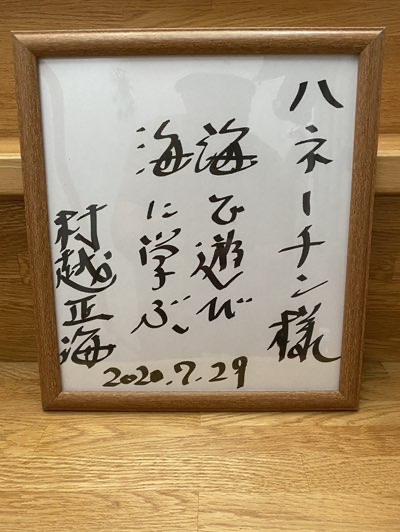 ハネーチン様
海で遊び
海に学ぶ
村越正海
2020.7.29